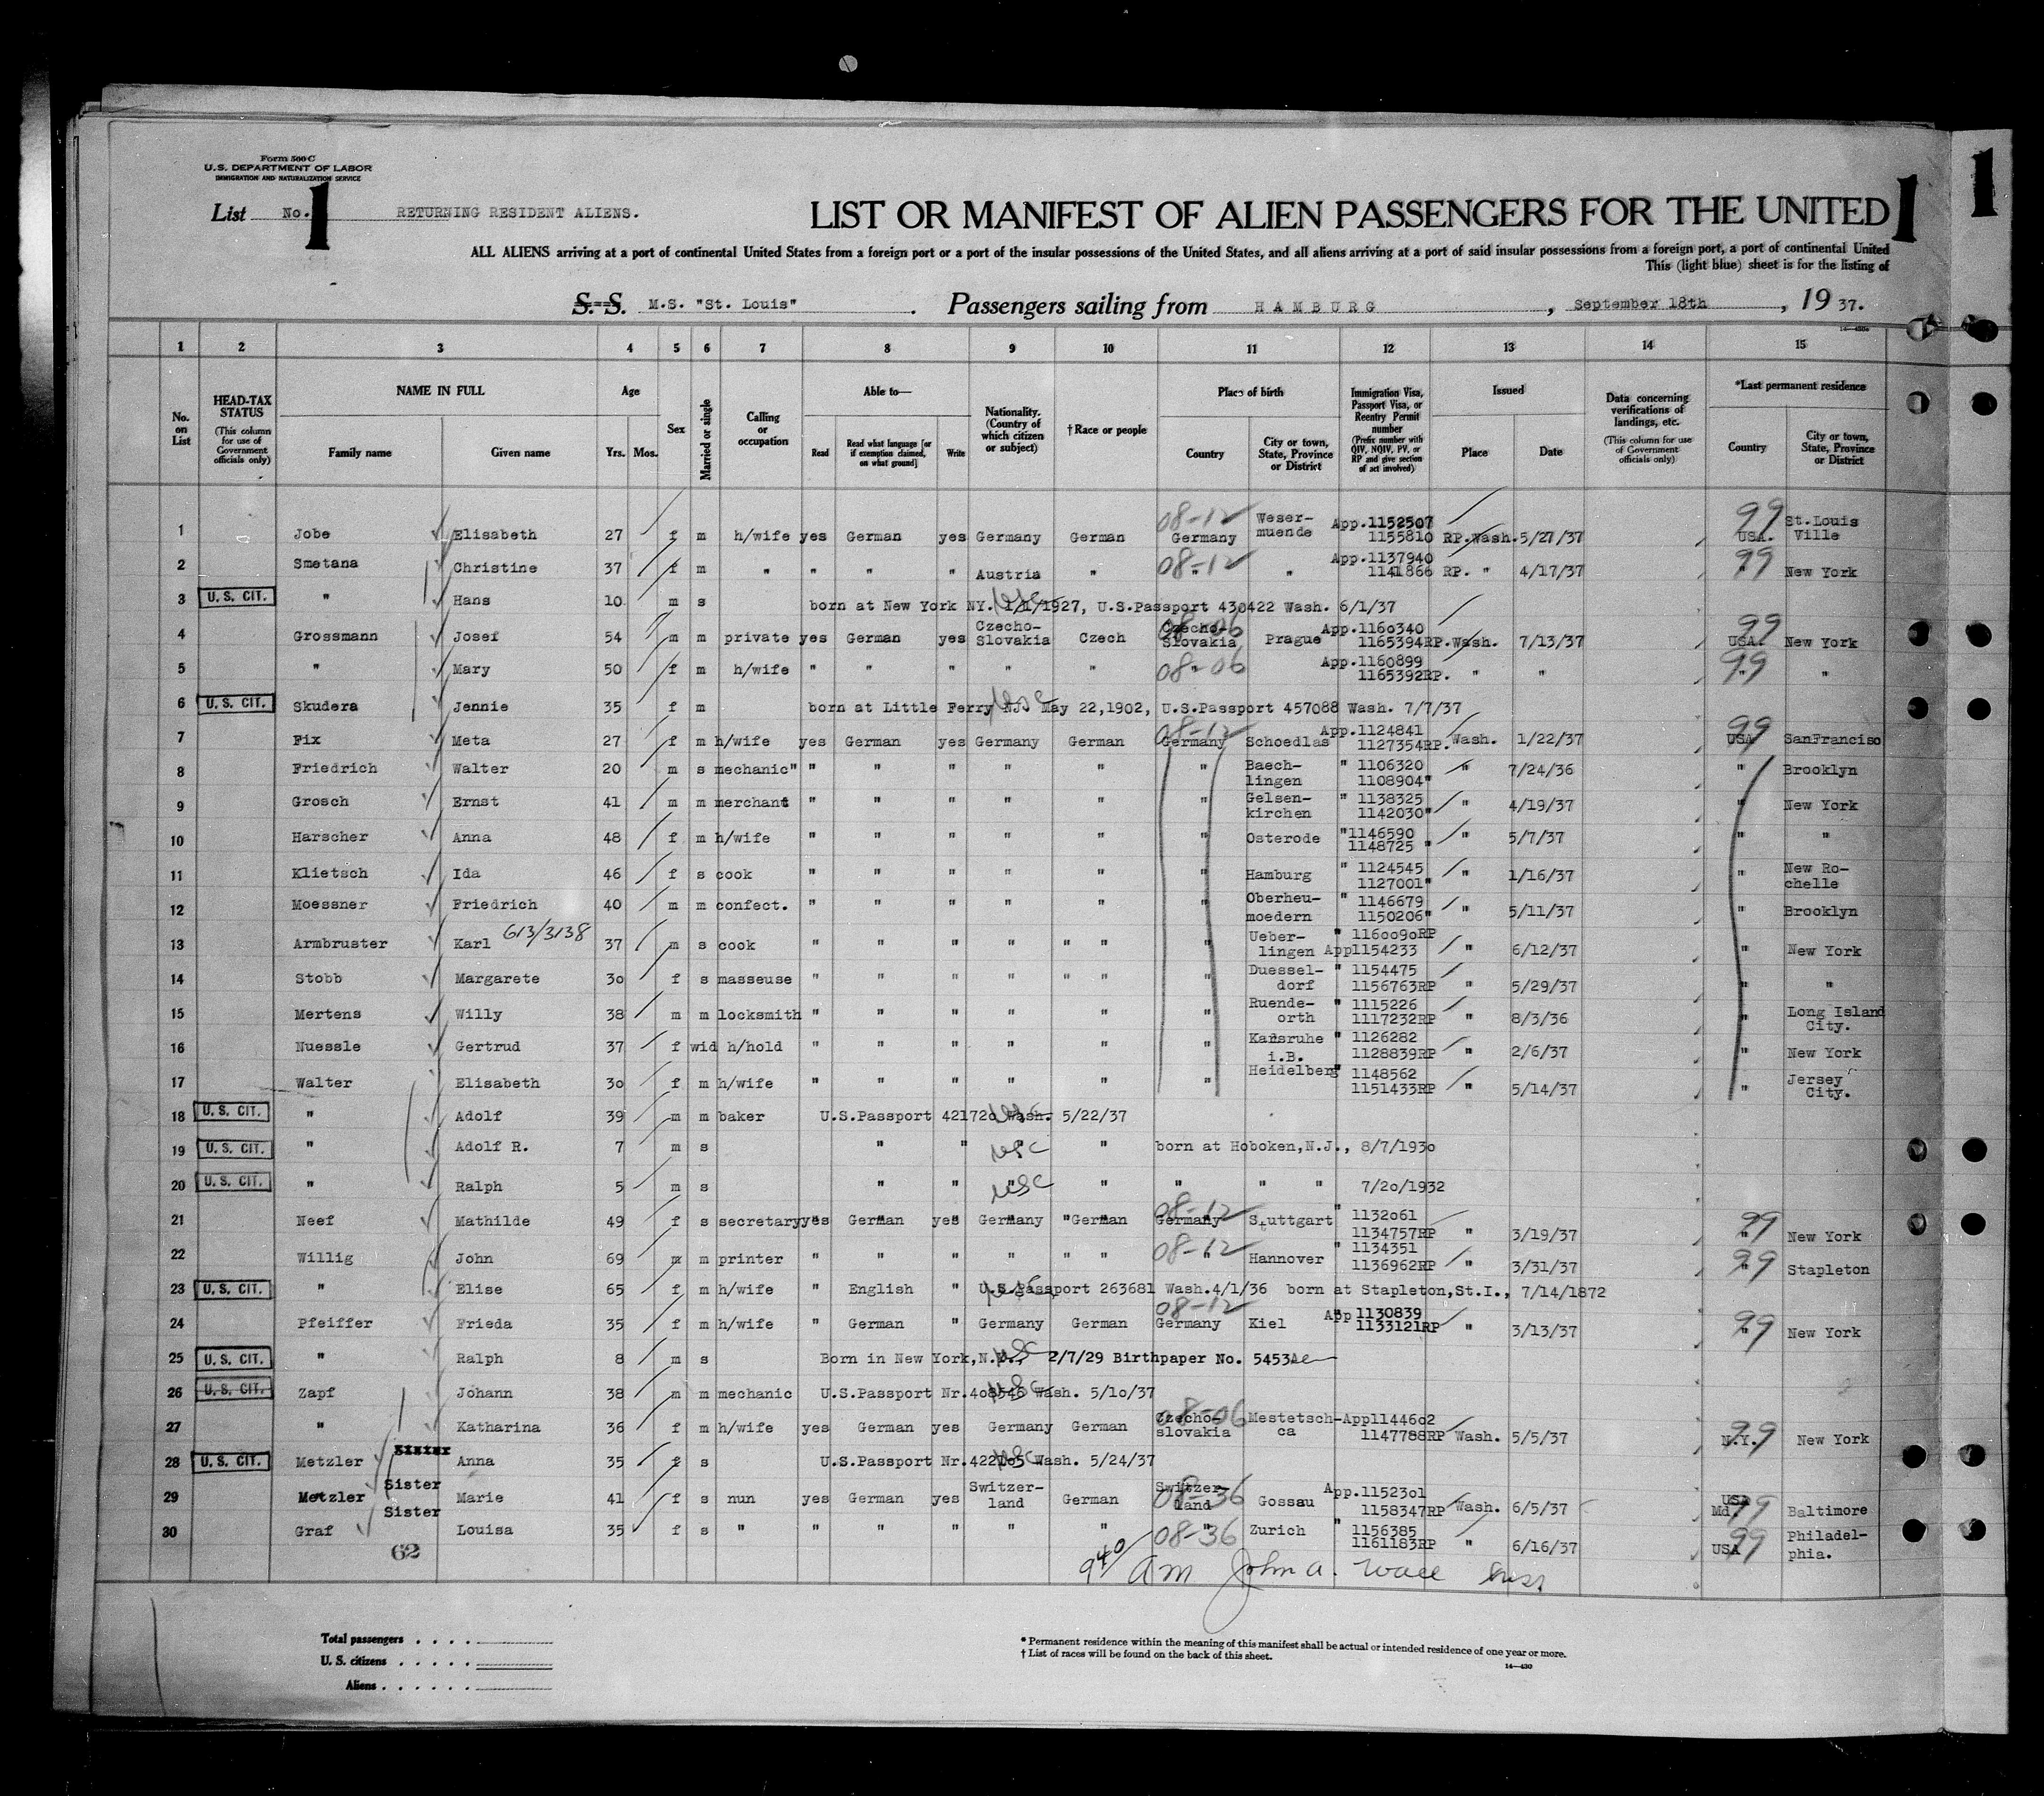 Form 500-C
U.S. DEPARTMENT OF LABOR
IMMIGRATION AND NATURALIZATION SERVICE
List No. 1 RETURNING RESIDENT ALIENS. LIST OR MANIFEST OF ALIEN PASSENGERS FOR THE UNITED 1 1
ALL ALIENS arriving at a port of continental United States from a foreign port or a port of the insular possessions of the United States, and all aliens arriving at a port of said insular possessions from a foreign port, a port of continental United
This (light blue) sheet is for the listing of
S. S. M.S. "St. Louis" . Passengers sailing from HAMBURG , September 18th , 19 37.
1 2 3 4 5 6 7 8 9 10 11 12 13 14 15
No. on List
HEAD-TAX STATUS (This column for use of Government officials only)
NAME IN FULL Family name Given name
Age Yrs. Mos.
Sex
Married or single
Calling or occupation
Able to— Read Read what language [or if exemption claimed, on what ground] Write
Nationality. (Country of which citizen or subject)
† Race or people
Place of birth Country City or town, State, Province or District
Immigration Visa, Passport Visa, or Reentry Permit number (Prefix number with QIV, NQIV, PV, or RP and give section of act involved)
Issued Place Date
Data concerning verifications of landings, etc. (This column for use of Government officials only)
*Last permanent residence Country City or town, State, Province or District
1 Jobe Elisabeth 27 f m h/wife yes German yes Germany German 08-12 Germany Weser-muende App.1152507 1155810 RP.Wash. 5/27/37 99 USA. St.Louis Ville
2 Smetana Christine 37 f m " " " " Austria " 08-12 " " App.1137940 1141866 RP. " 4/17/37 99 " New York
3 U. S. CIT. " Hans 10 m s born at New York NY. 1/1/1927, U.S.Passport 430422 Wash. 6/1/37 USC
4 Grossmann Josef 54 m m private yes German yes Czecho-Slovakia Czech 08-06 Czecho-Slovakia Prague App.1160340 1165394RP.Wash. 7/13/37 99 USA. New York
5 " Mary 50 f m h/wife " " " " " 08-06 " App.1160899 1165392RP. " " 99 " "
6 U. S. CIT. Skudera Jennie 35 f m born at Little Ferry NJ. May 22,1902, U.S.Passport 457088 Wash. 7/7/37 USC
7 Fix Meta 27 f m h/wife yes German yes Germany German 08-12 Germany Schoedlas App.1124841 1127354RP. Wash. 1/22/37 99 USA SanFranciso
8 Friedrich Walter 20 m s mechanic" " " " " " " Baech-lingen " 1106320 1108904" " 7/24/36 " Brooklyn
9 Grosch Ernst 41 m m merchant " " " " " " Gelsen-kirchen " 1138325 1142030" " 4/19/37 " New York
10 Harscher Anna 48 f m h/wife " " " " " " Osterode "1146590 1148725 " " 5/7/37 " "
11 Klietsch Ida 46 f s cook " " " " " " Hamburg " 1124545 1127001" " 1/16/37 " New Ro-chelle
12 Moessner Friedrich 40 m m confect. " " " " " " Oberheu-moedern " 1146679 1150206" " 5/11/37 " Brooklyn
13 Armbruster Karl 613/3138 37 m s cook " " " " " " " Ueber-lingen " 1160090RP App1154233 " 6/12/37 " New York
14 Stobb Margarete 30 f s masseuse " " " " " " " Duessel-dorf " 1154475 1156763RP " 5/29/37 " "
15 Mertens Willy 38 m m locksmith " " " " " " Ruende-orth " 1115226 1117232RP " 8/3/36 " Long Island City.
16 Nuessle Gertrud 37 f wid h/hold " " " " " " Karlsruhe i.B. " 1126282 1128839RP " 2/6/37 " New York
17 Walter Elisabeth 30 f m h/wife " " " " " " Heidelberg " 1148562 1151433RP " 5/14/37 " Jersey City.
18 U. S. CIT. " Adolf 39 m m baker U.S.Passport 421720 Wash. 5/22/37 USC
19 U. S. CIT. " Adolf R. 7 m s " " " " born at Hoboken,N.J., 8/7/1930 USC
20 U. S. CIT. " Ralph 5 m s " " " " " " " 7/20/1932 USC
21 Neef Mathilde 49 f s secretary yes German yes Germany "German 08-12 Germany Stuttgart " 1132061 1134757RP " 3/19/37 99 " New York
22 Willig John 69 m m printer " " " " " " 08-12 " Hannover " 1134351 1136962RP " 3/31/37 99 " Stapleton
23 U. S. CIT. " Elise 65 f m h/wife " English " U.S.Passport 263681 Wash.4/1/36 born at Stapleton,St.I., 7/14/1872 USC
24 Pfeiffer Frieda 35 f m h/wife " German " Germany German 08-12 Germany Kiel App 1130839 1133121RP " 3/13/37 99 " New York
25 U. S. CIT. " Ralph 8 m s Born in New York,N.Y., 2/7/29 Birthpaper No. 5453 USC
26 U. S. CIT. Zapf Johann 38 m m mechanic U.S.Passport Nr.408546 Wash. 5/10/37 USC
27 " Katharina 36 f m h/wife yes German yes Germany German 08-06 Czecho-slovakia Mestetsch-ca App1144602 1147788RP Wash. 5/5/37 99 N.Y. New York
28 U. S. CIT. Metzler Sister Anna 35 f s U.S.Passport Nr.422105 Wash. 5/24/37 USC
29 Metzler Sister Marie 41 f s nun yes German yes Switzer-land German 08-36 Switzer-land Gossau App.1152301 1158347RP Wash. 6/5/37 99 USA Md Baltimore
30 Graf Sister Louisa 35 f s " " " " " " 08-36 " Zurich " 1156385 1161183RP " 6/16/37 99 USA Philadel-phia.
62
9 40/ am John A. Wall Insp
Total passengers . . . .
U. S. citizens . . . . .
Aliens . . . . . .
* Permanent residence within the meaning of this manifest shall be actual or intended residence of one year or more.
† List of races will be found on the back of this sheet.
14—430